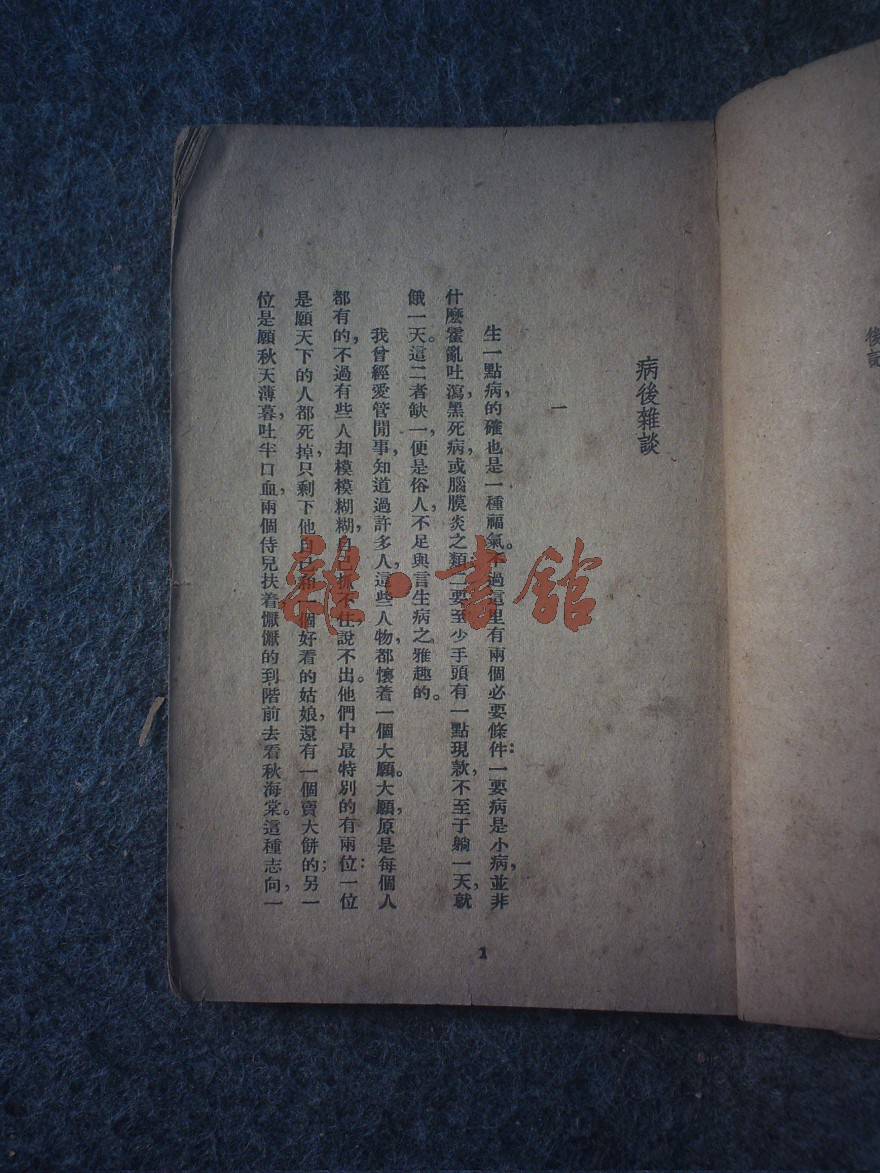 後記
病後雜談
一
生一點病，的確也是一種福氣。不過這里有兩個必要條件：一要病是小病，並非
什麼霍亂吐瀉，黑死病，或腦膜炎之類；二要至少手頭有一點現款，不至于躺一天，就
餓一天。這二者缺一，便是俗人，不足與言生病之雅趣的。
我曾經愛管閒事，知道過許多人，這些人物，都懷着一個大願。大願，原是每個人
都有的，不過有些人却模模糊糊，自己抓不住，說不出。他們中最特別的有兩位：一位
是願天下的人都死掉，只剩下他自己和一個好看的姑娘，還有一個賣大餅的；另一
位是願秋天薄暮，吐半口血，兩個侍兒扶着，懨懨的到階前去看秋海棠。這種志向，一
1
雜·書館